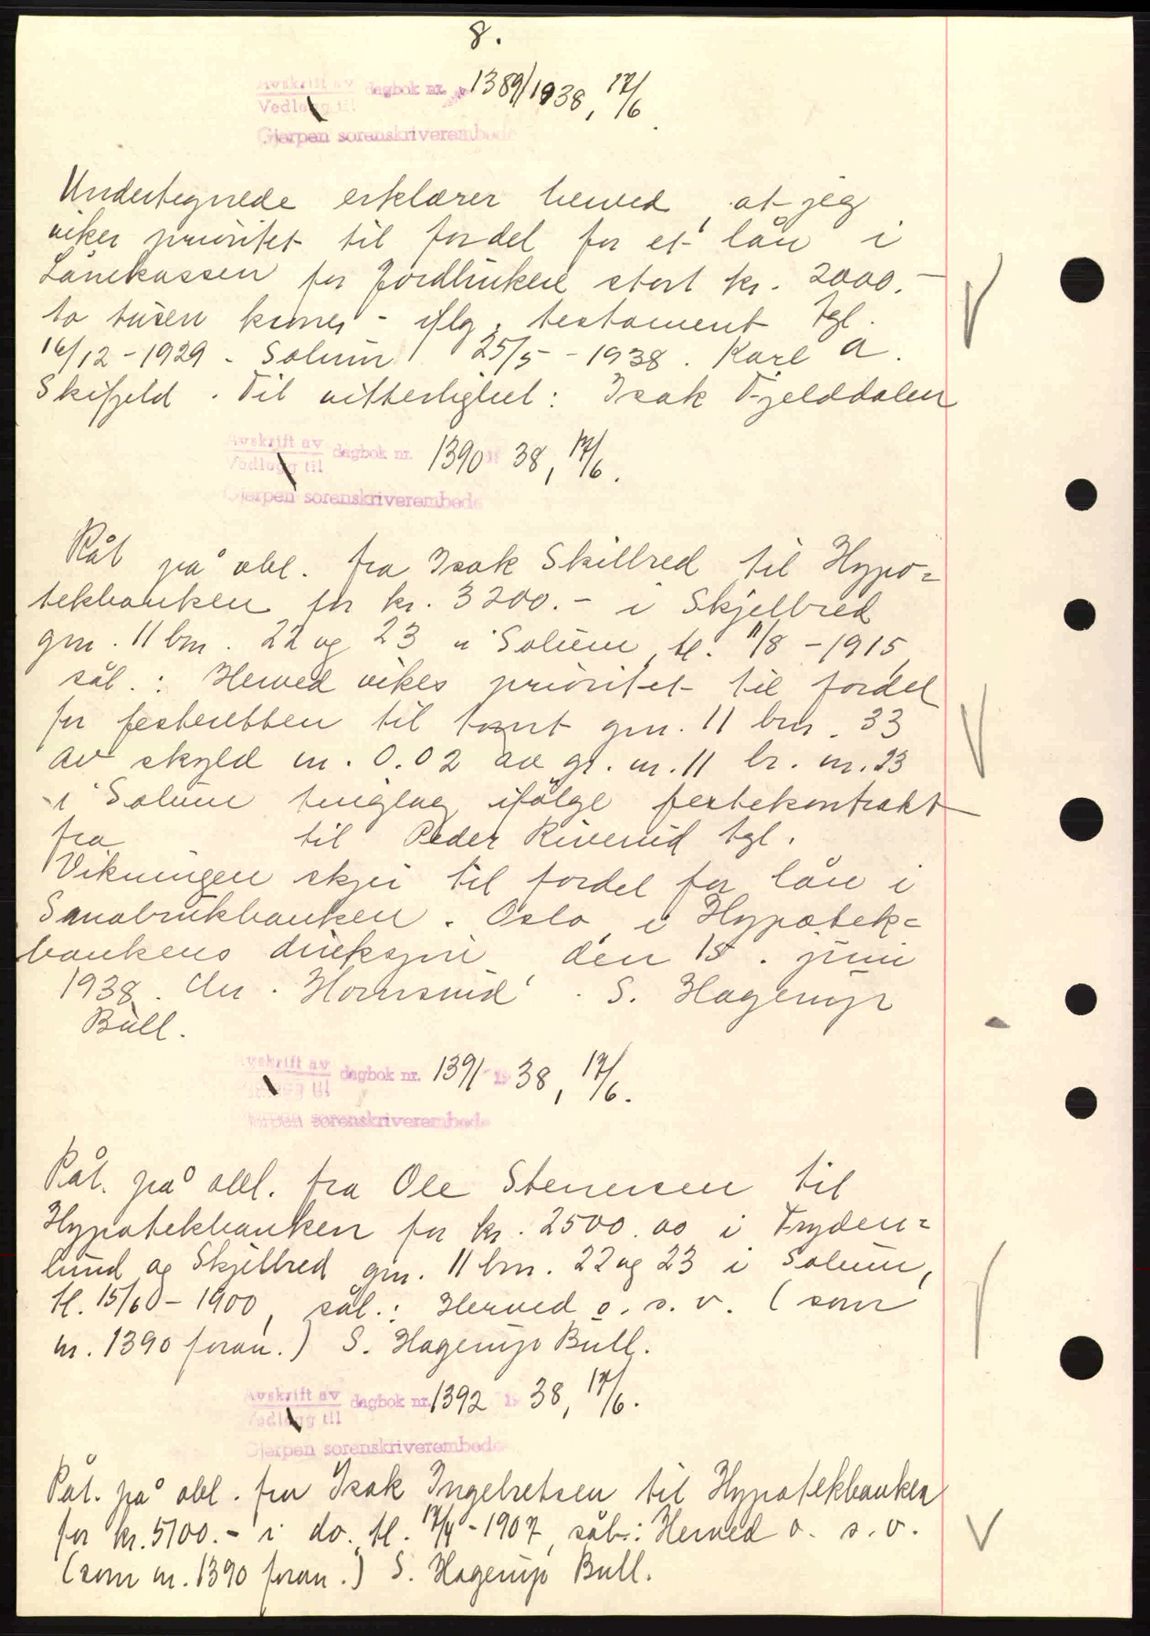 8.
Avskrift av dagbok nr. 1389/1938, 17/6.
Vedlegg til
Gjerpen sorenskriverembede
Undertegnede erklærer herved, at jeg
viker prioritet til fordel for et lån i
Lånekassen for Jordbrukere stort kr. 2000.-
to tusen kroner - iflg. testament tgl.
16/12-1929. Solum 25/5-1938. Karl A.
Skifjeld. Til vitterlighet: Isak Fjelddalen
Avskrift av dagbok nr. 1390 19 38, 17/6.
Vedlegg til
Gjerpen sorenskriverembede
Påt på obl. fra Isak Skilbred til Hypo=
tekbanken for kr. 3200.- i Skjelbred
gnr. 11 bnr. 22 og 23 i Solum, tl. 11/8-1915,
sål.: Herved vikes prioritet til fordel
for festeretten til tomt gnr. 11 bnr. 33
av skyld m. 0.02 av gr. nr. 11 br. nr. 23
i Solum tinglag ifølge festekontrakt
fra til Peder Riverud tgl.
Vikningen skjer til fordel for lån i
Småbrukbanken. Oslo, i Hypotek=
bankens direksjon den 15. juni
1938. Chr. Hornsrud. S. Hagerup
Bull.
Avskrift av dagbok nr. 1391 19 38, 17/6.
Vedlegg til
Gjerpen sorenskriverembede
Påt. på obl. fra Ole Stenersen til
Hypotekbanken for kr. 2500.00 i Fryden=
lund og Skjelbred gnr. 11 bnr. 22 og 23 i Solum,
tl. 15/6-1900, sål.: Herved o. s. v. (som
nr. 1390 foran.) S. Hagerup Bull.
Avskrift av dagbok nr. 1392 19 38, 17/6.
Vedlegg til
Gjerpen sorenskriverembede
Påt. på obl. fra Isak Ingebretsen til Hypotekbanken
for kr. 5700.- i do. tl. 17/4-1907, sål.: Herved o. s. v.
(som nr. 1390 foran.) S. Hagerup Bull.